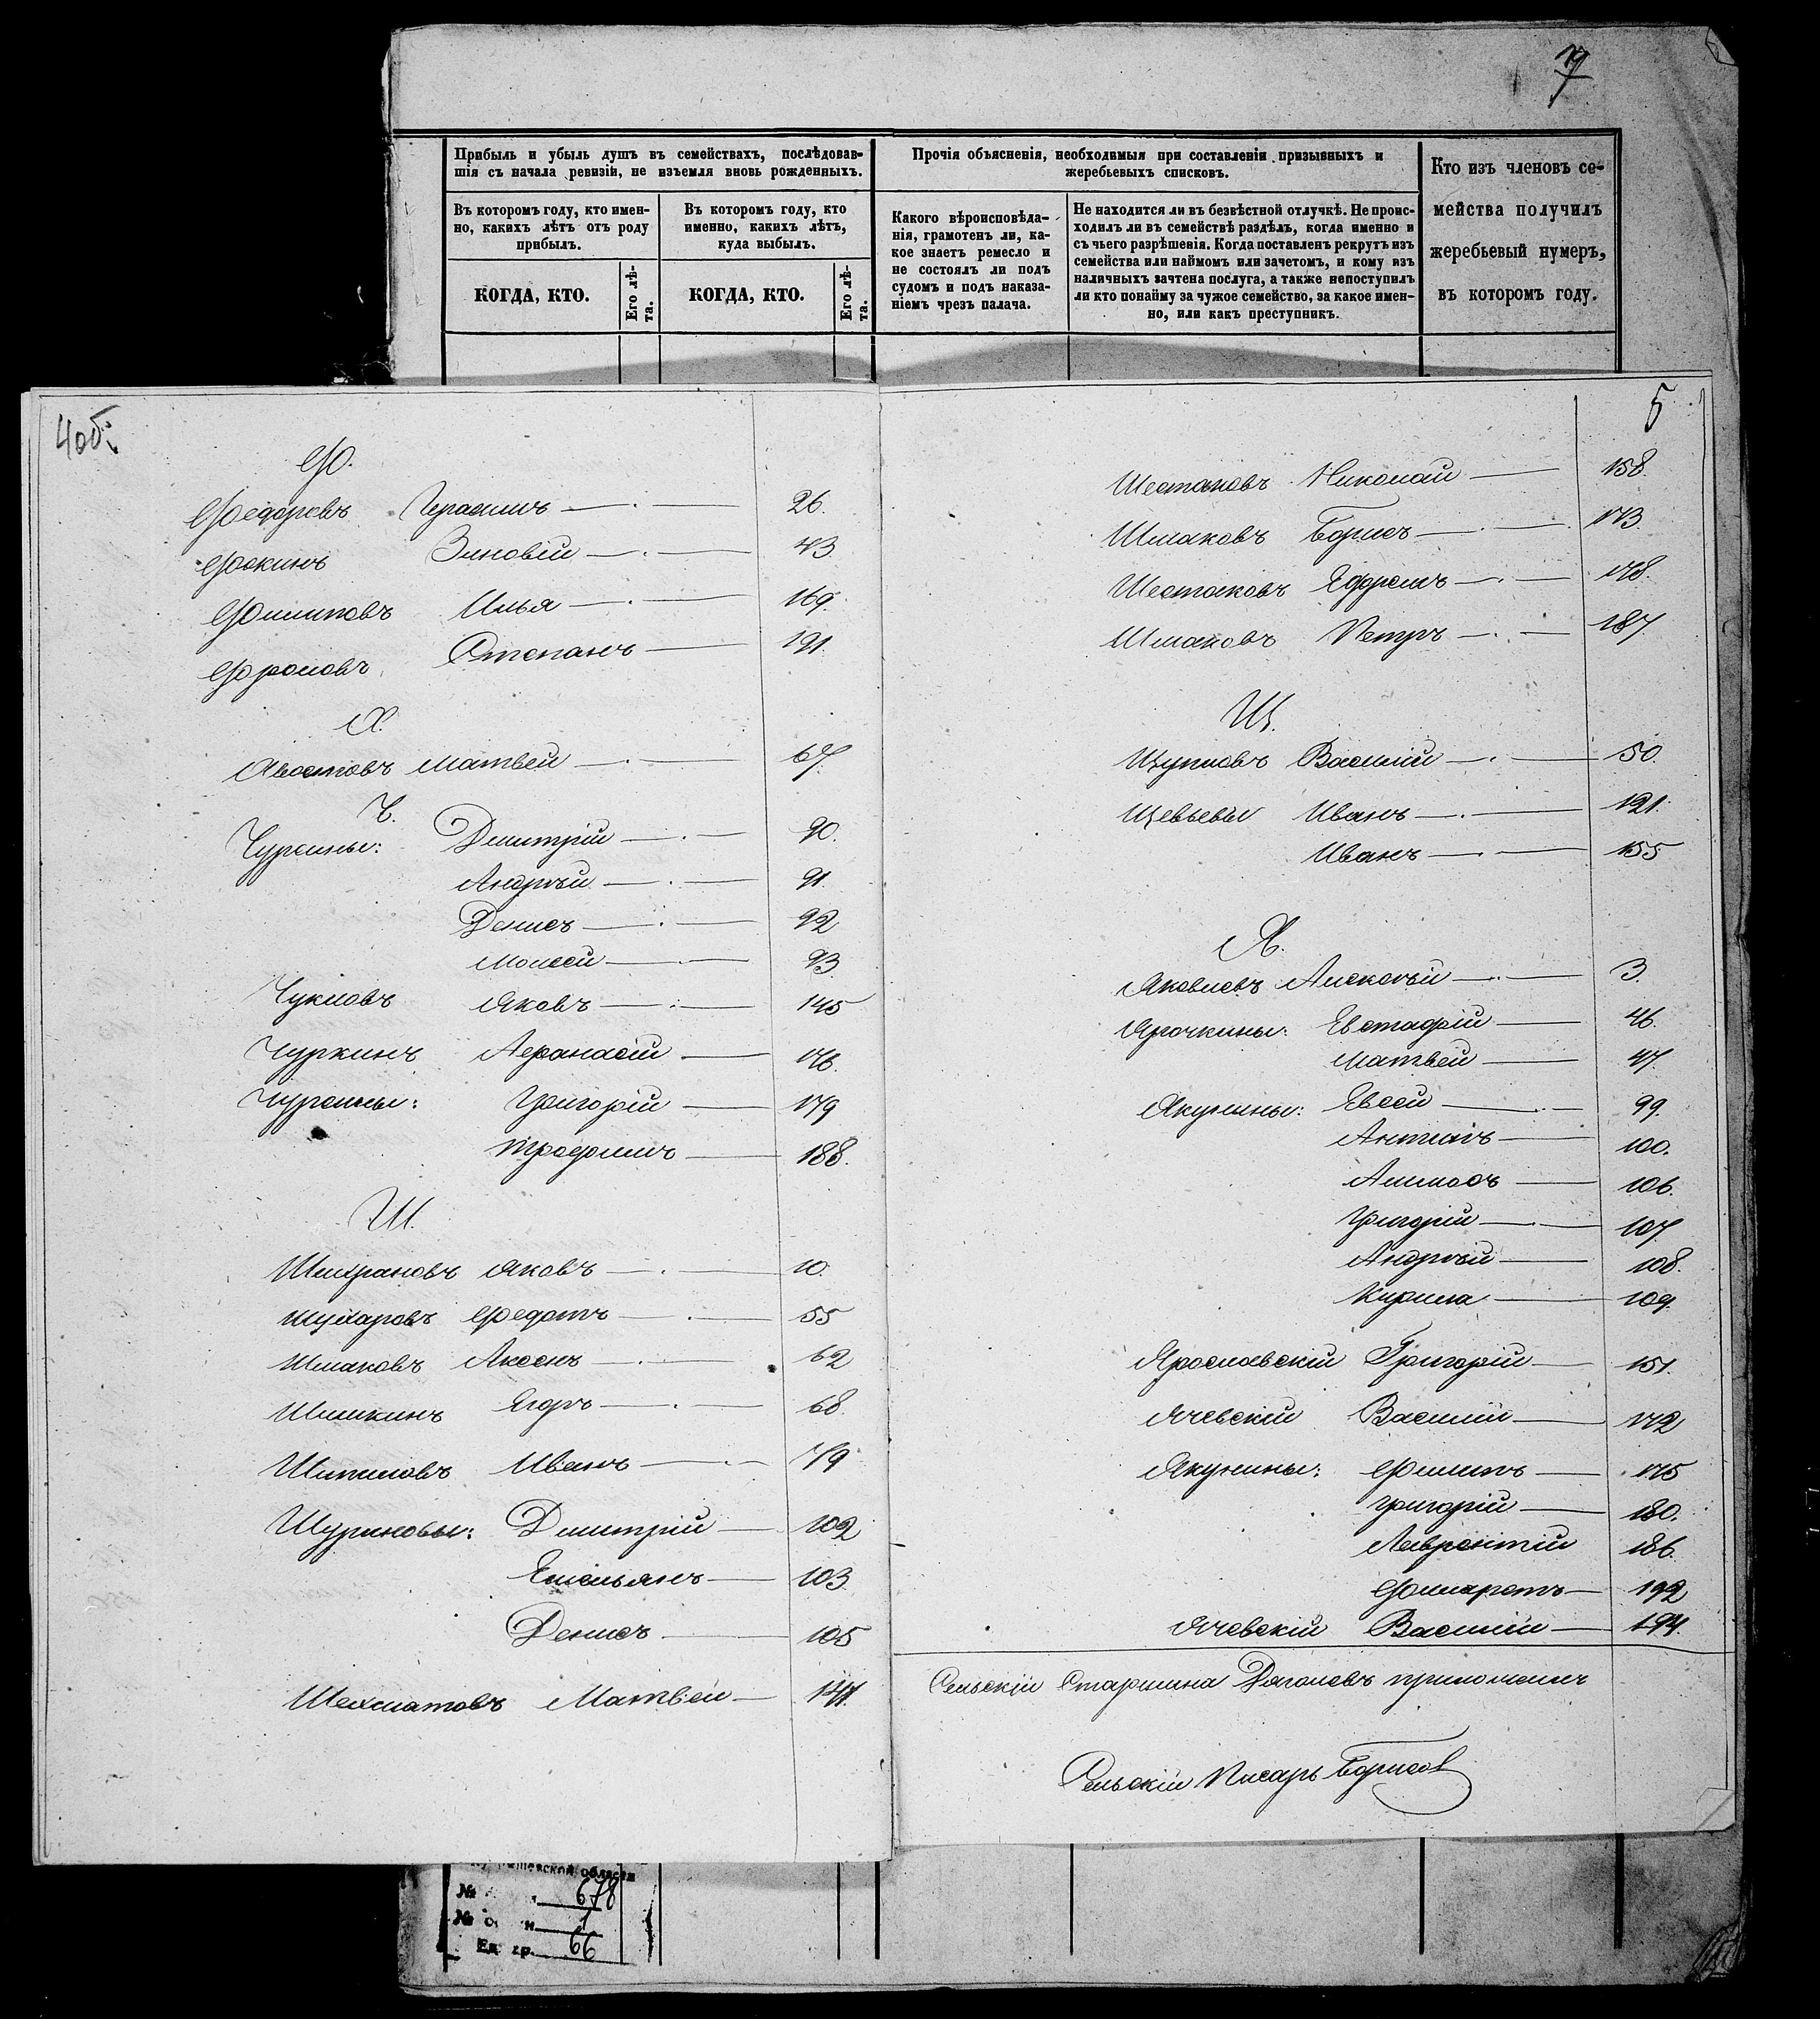 19
7
Прибыль и убыль душъ въ семействахъ, послѣдовав-
шія съ начала ревизіи, не изъемля вновь рожденныхъ.
Въ которомъ году, кто имен-
но, какихъ лѣтъ отъ роду
прибылъ.
КОГДА, КТО.
Его лѣ-
та.
Въ которомъ году, кто
именно, какихъ лѣтъ,
куда выбылъ.
КОГДА, КТО.
Его лѣ-
та.
Прочія объясненія, необходимыя при составленіи призывныхъ и
жеребьевыхъ списковъ.
Какого вѣроисповѣда-
нія, грамотенъ ли, ка-
кое знаетъ ремесло и
не состоялъ ли подъ
судомъ и подъ наказа-
ніемъ чрезъ палача.
Не находится ли въ безвѣстной отлучкѣ. Не проис-
ходилъ ли въ семействѣ раздѣлъ, когда именно и
съ чьего разрѣшенія. Когда поставленъ рекрутъ изъ
семейства или наймомъ или зачетомъ, и кому изъ
наличныхъ зачтена послуга, а также непоступилъ
ли кто понайму за чужое семейство, за какое имен-
но, или какъ преступникъ.
Кто изъ членовъ се-
мейства получилъ
жеребьевый нумеръ,
въ которомъ году.
4 об.
Ф.
Федоровъ Герасимъ 26.
Фокинъ Зиновій 43
Филиповъ Илья 169.
Фроловъ Степанъ 191.
Х.
Хвостовъ Матвей 67.
Ч.
Чурсины: Дмитрій 90.
Андрѣй 91.
Денисъ 92
Моисей 93.
Чукловъ Яковъ 145
Чуркинъ Афанасій 176.
Чурсины: Григорій 179
Трофимъ 188.
Ш.
Яковъ 10.
Шухаровъ Федотъ 55
Шмаковъ Аксенъ 62
Шишкинъ Егоръ 68.
Шипиловъ Иванъ 79
Шуриновы: Дмитрій 102
Емельянъ 103.
Денисъ 105
Шехматовъ Матвѣй 147.
5
Шестаковъ Николай 158.
Шмаковъ Борисъ 173.
Шестаковъ Ефремъ 178.
Шмаковъ Петръ 187.
Щ.
Щупловъ Василій 50.
Щевьевы Иванъ 121.
Иванъ 155
Я.
Яковлевъ Алексѣй 3.
Ярочкины: Евстафій 46.
Матвей 47.
Якунины: Евсей 99.
Антипъ 100.
Алимпъ 106.
Григорій 107
Андрѣй 108.
Кирила 109.
Ярославскій Григорій 151.
Ячевскій Василій 172
Якунины: Филипъ 175
Григорій 180.
Лаврентій 186.
Филаретъ 192
Ячевскій Василій 194.
Сельскій Старшина Дягилевъ приложилъ
Сельскій Писарь Борисов
области
№ 678
№ 1
Ед. хр. 66